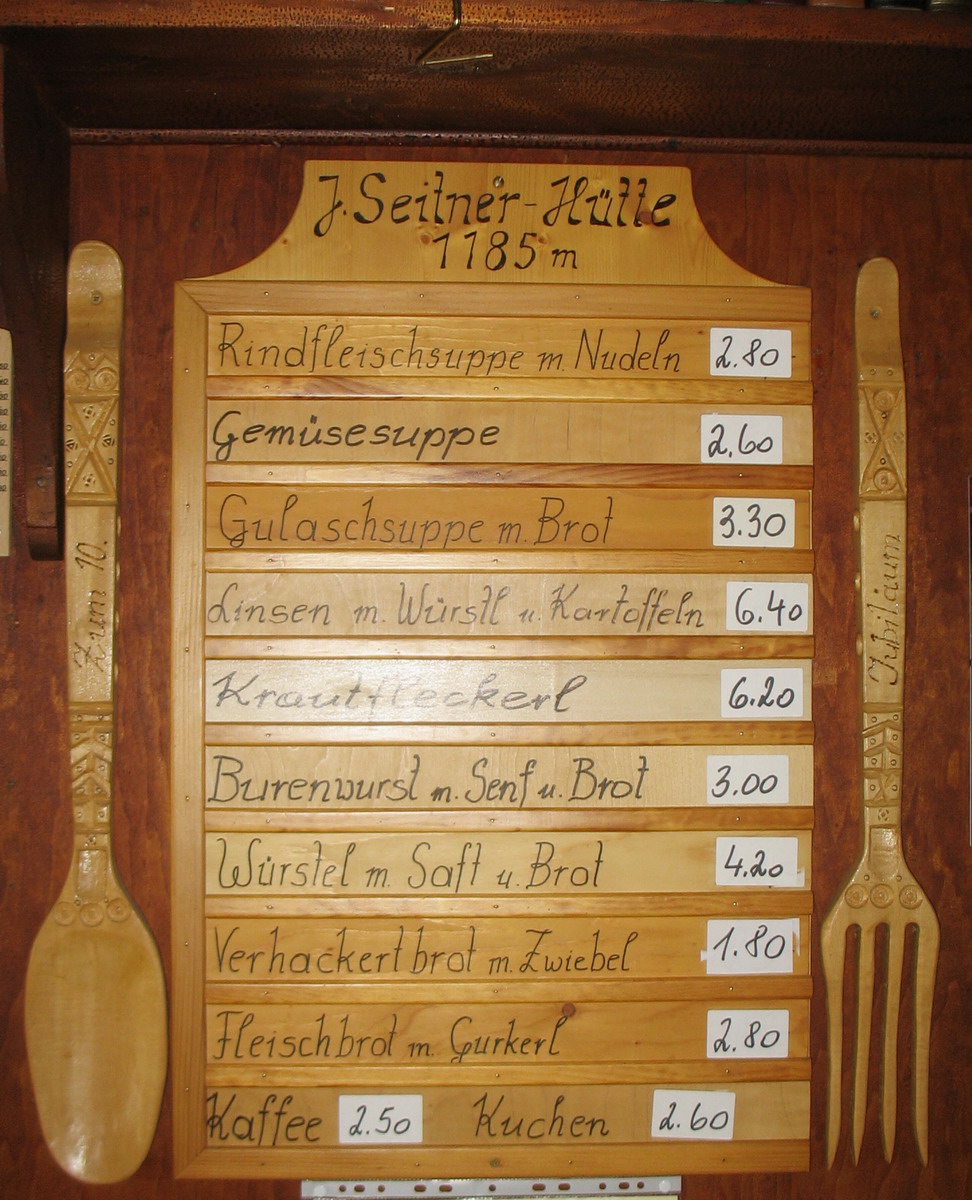 J. Seitner-Hütte
1185 m
Rindfleischsuppe m. Nudeln 2.80
Gemüsesuppe 2.60
Gulaschsuppe m. Brot 3.30
Linsen m. Würstl u. Kartoffeln 6.40
Krautfleckerl 6.20
Burenwurst m. Senf u. Brot 3.00
Würstel m. Saft u. Brot 4.20
Verhackertbrot m. Zwiebel 1.80
Fleischbrot m. Gurkerl 2.80
Kaffee 2.50 Kuchen 2.60
Zum 10.
Jubiläum